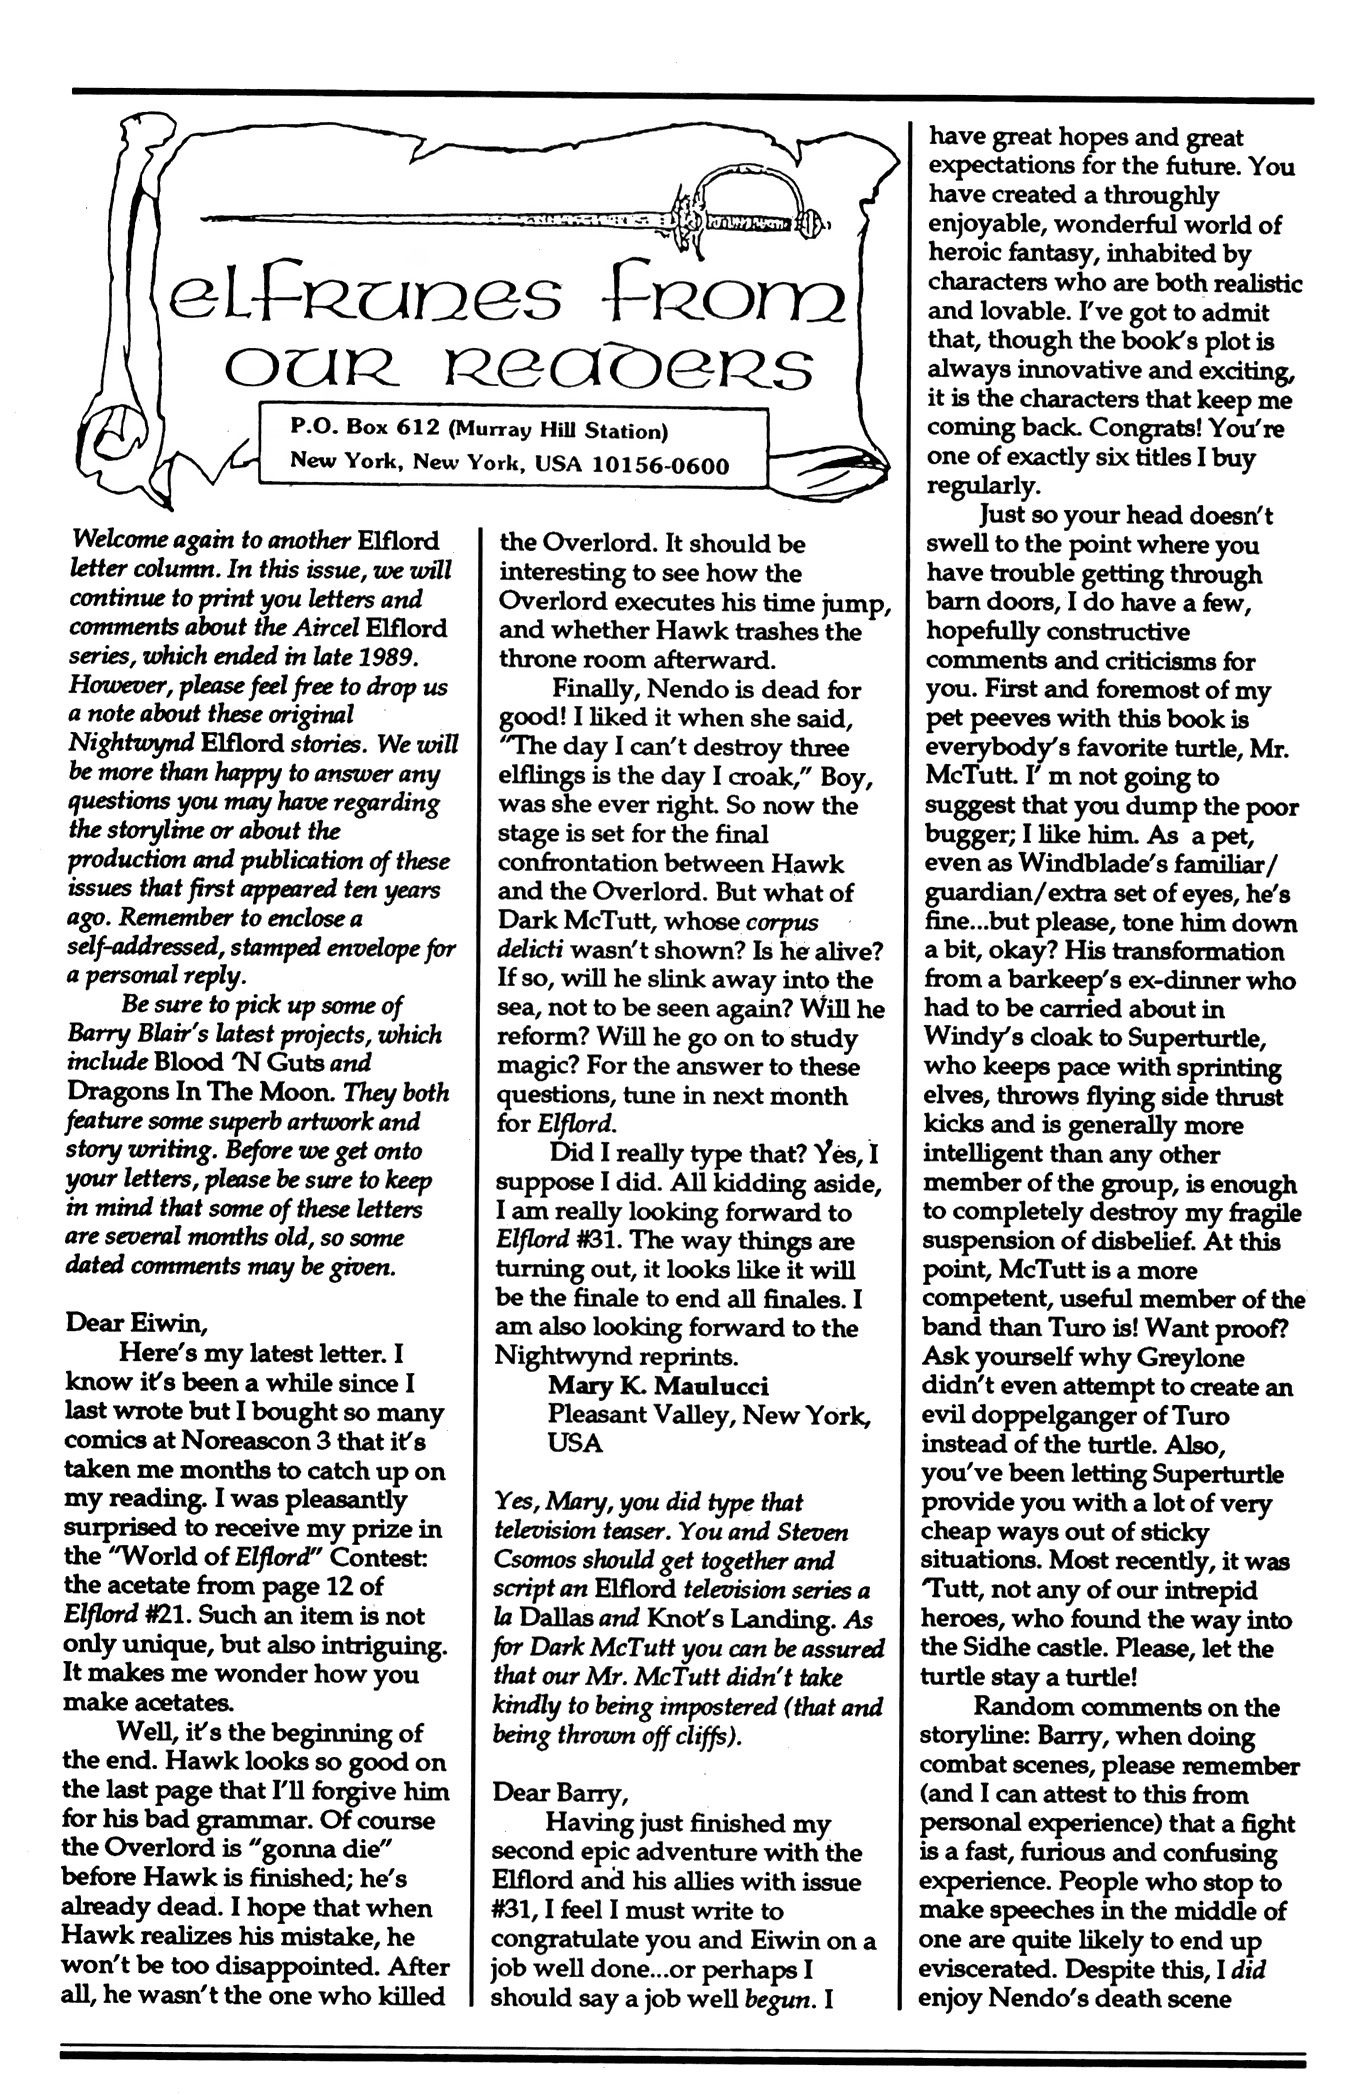 elfrunes from
our readers
P.O. Box 612 (Murray Hill Station)
New York, New York, USA 10156-0600
Welcome again to another Elflord
letter column. In this issue, we will
continue to print you letters and
comments about the Aircel Elflord
series, which ended in late 1989.
However, please feel free to drop us
a note about these original
Nightwynd Elflord stories. We will
be more than happy to answer any
questions you may have regarding
the storyline or about the
production and publication of these
issues that first appeared ten years
ago. Remember to enclose a
self-addressed, stamped envelope for
a personal reply.
Be sure to pick up some of
Barry Blair's latest projects, which
include Blood 'N Guts and
Dragons In The Moon. They both
feature some superb artwork and
story writing. Before we get onto
your letters, please be sure to keep
in mind that some of these letters
are several months old, so some
dated comments may be given.
Dear Eiwin,
Here's my latest letter. I
know it's been a while since I
last wrote but I bought so many
comics at Noreascon 3 that it's
taken me months to catch up on
my reading. I was pleasantly
surprised to receive my prize in
the "World of Elflord" Contest:
the acetate from page 12 of
Elflord #21. Such an item is not
only unique, but also intriguing.
It makes me wonder how you
make acetates.
Well, it's the beginning of
the end. Hawk looks so good on
the last page that I'll forgive him
for his bad grammar. Of course
the Overlord is "gonna die"
before Hawk is finished; he's
already dead. I hope that when
Hawk realizes his mistake, he
won't be too disappointed. After
all, he wasn't the one who killed
the Overlord. It should be
interesting to see how the
Overlord executes his time jump,
and whether Hawk trashes the
throne room afterward.
Finally, Nendo is dead for
good! I liked it when she said,
"The day I can't destroy three
elflings is the day I croak," Boy,
was she ever right. So now the
stage is set for the final
confrontation between Hawk
and the Overlord. But what of
Dark McTutt, whose corpus
delicti wasn't shown? Is he alive?
If so, will he slink away into the
sea, not to be seen again? Will he
reform? Will he go on to study
magic? For the answer to these
questions, tune in next month
for Elflord.
Did I really type that? Yes, I
suppose I did. All kidding aside,
I am really looking forward to
Elflord #31. The way things are
turning out, it looks like it will
be the finale to end all finales. I
am also looking forward to the
Nightwynd reprints.
Mary K. Maulucci
Pleasant Valley, New York,
USA
Yes, Mary, you did type that
television teaser. You and Steven
Csomos should get together and
script an Elflord television series a
la Dallas and Knot's Landing. As
for Dark McTutt you can be assured
that our Mr. McTutt didn't take
kindly to being impostered (that and
being thrown off cliffs).
Dear Barry,
Having just finished my
second epic adventure with the
Elflord and his allies with issue
#31, I feel I must write to
congratulate you and Eiwin on a
job well done...or perhaps I
should say a job well begun. I
have great hopes and great
expectations for the future. You
have created a throughly
enjoyable, wonderful world of
heroic fantasy, inhabited by
characters who are both realistic
and lovable. I've got to admit
that, though the book's plot is
always innovative and exciting,
it is the characters that keep me
coming back. Congrats! You're
one of exactly six titles I buy
regularly.
Just so your head doesn't
swell to the point where you
have trouble getting through
barn doors, I do have a few,
hopefully constructive
comments and criticisms for
you. First and foremost of my
pet peeves with this book is
everybody's favorite turtle, Mr.
McTutt. I' m not going to
suggest that you dump the poor
bugger; I like him. As a pet,
even as Windblade's familiar/
guardian/extra set of eyes, he's
fine...but please, tone him down
a bit, okay? His transformation
from a barkeep's ex-dinner who
had to be carried about in
Windy's cloak to Superturtle,
who keeps pace with sprinting
elves, throws flying side thrust
kicks and is generally more
intelligent than any other
member of the group, is enough
to completely destroy my fragile
suspension of disbelief. At this
point, McTutt is a more
competent, useful member of the
band than Turo is! Want proof?
Ask yourself why Greylone
didn't even attempt to create an
evil doppelganger of Turo
instead of the turtle. Also,
you've been letting Superturtle
provide you with a lot of very
cheap ways out of sticky
situations. Most recently, it was
'Tutt, not any of our intrepid
heroes, who found the way into
the Sidhe castle. Please, let the
turtle stay a turtle!
Random comments on the
storyline: Barry, when doing
combat scenes, please remember
(and I can attest to this from
personal experience) that a fight
is a fast, furious and confusing
experience. People who stop to
make speeches in the middle of
one are quite likely to end up
eviscerated. Despite this, I did
enjoy Nendo's death scene